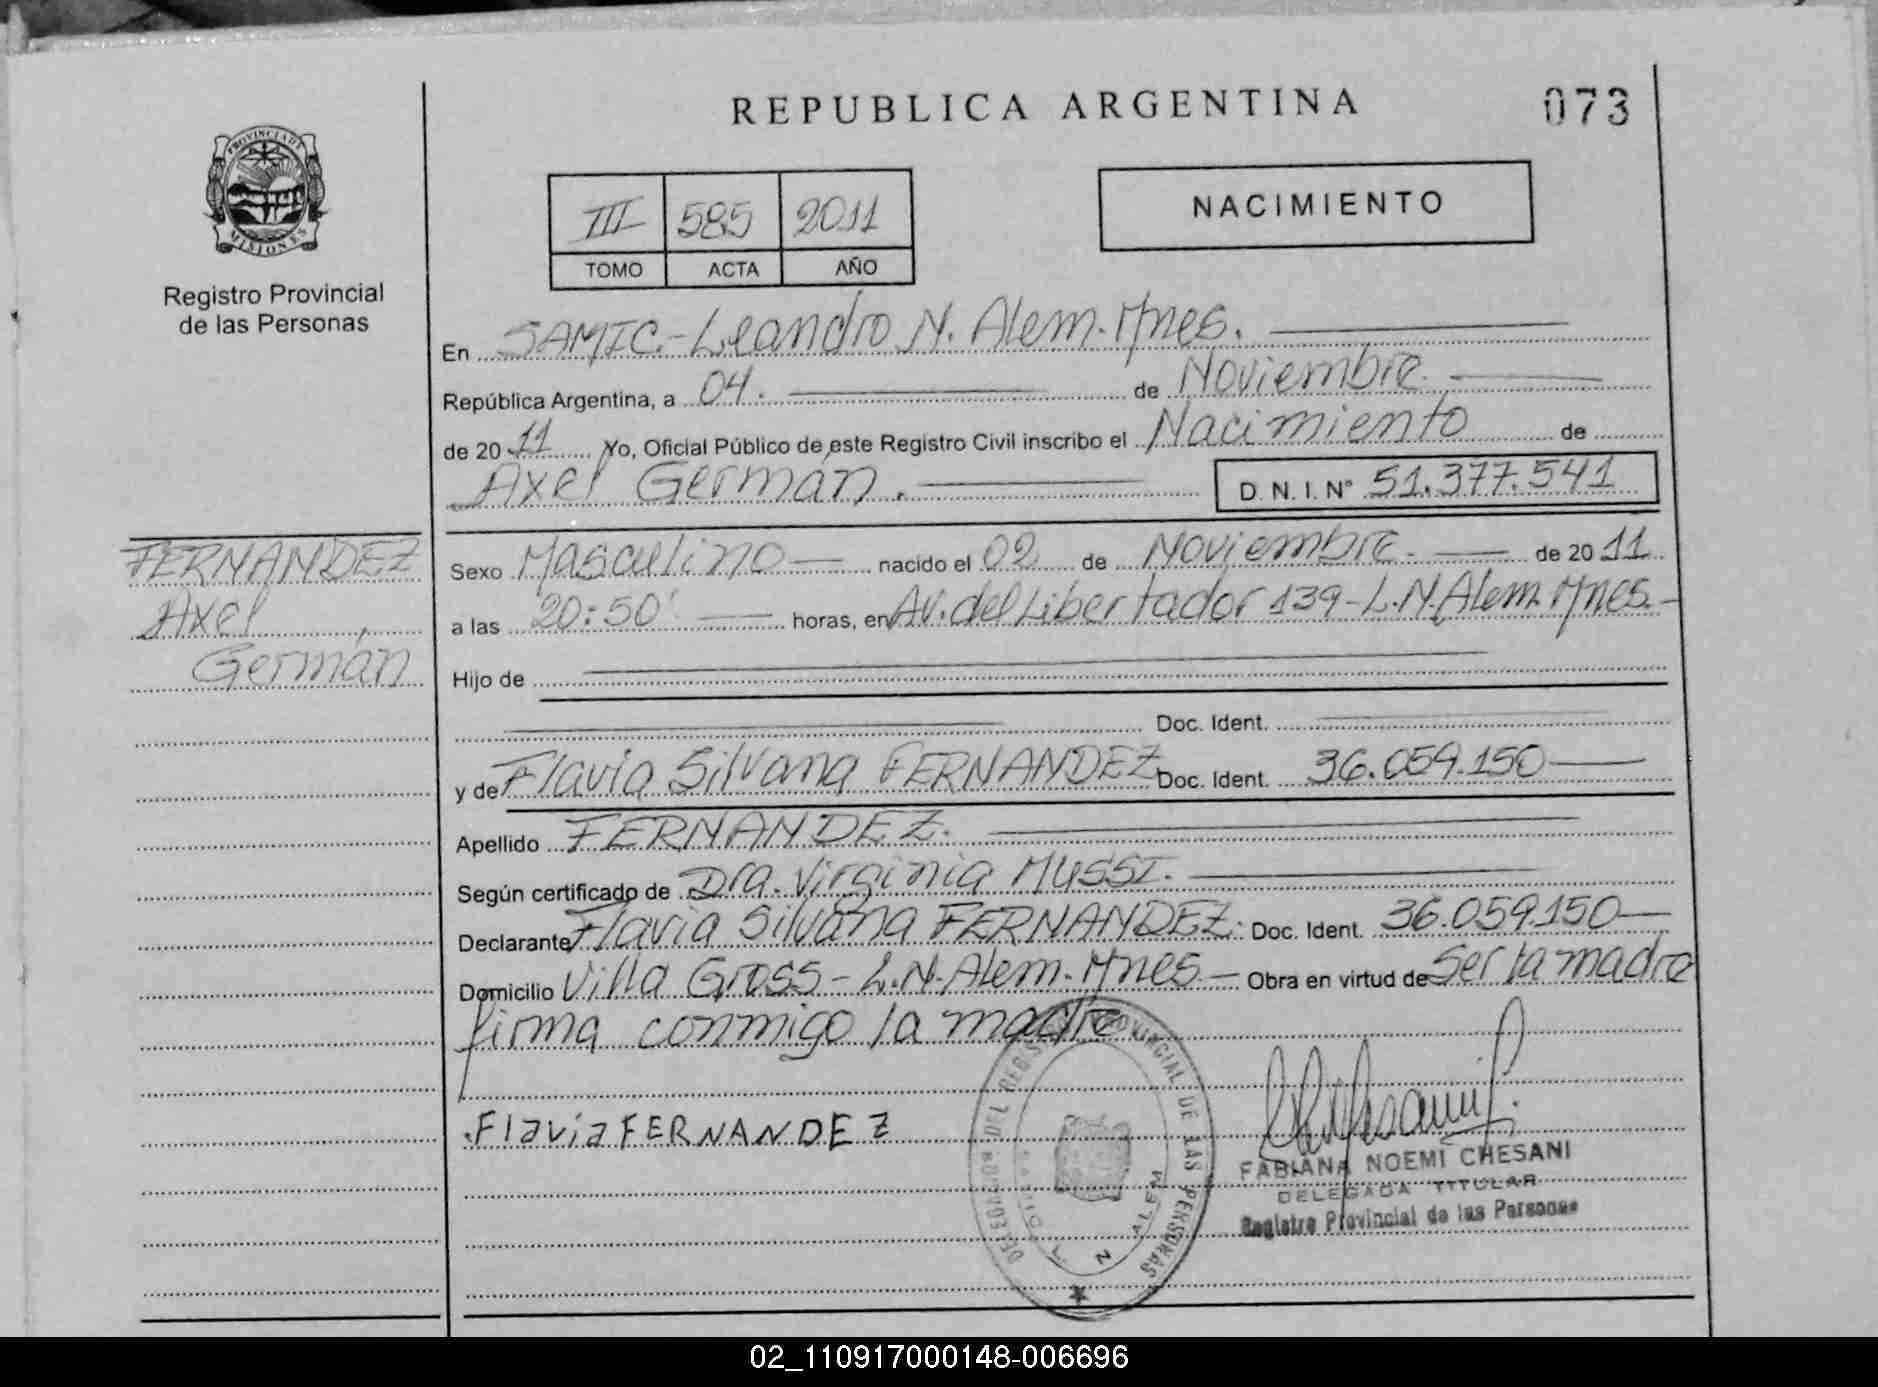 REPUBLICA ARGENTINA
073
PROVINCIA DE
MISIONES
Registro Provincial
de las Personas
III 585 2011
TOMO ACTA AÑO
NACIMIENTO
En SAMIC.-Leandro N. Alem. Mnes.
República Argentina, a 04. de Noviembre.
de 20 11 Yo, Oficial Público de este Registro Civil inscribo el Nacimiento de
Axel Germán. D.N.I. Nº 51.377.541
FERNANDEZ
Axel
Germán
Sexo Masculino nacido el 02 de Noviembre. de 20 11
a las 20:50' horas, en Av. del Libertador 139-L.N.Alem. Mnes.-
Hijo de
Doc. Ident.
y de Flavia Silvana FERNANDEZ Doc. Ident. 36.059.150
Apellido FERNANDEZ.
Según certificado de Dra. Virginia MUSSI.
Declarante Flavia Silvana FERNANDEZ. Doc. Ident. 36.059.150
Domicilio Villa Gross-L.N.Alem. Mnes- Obra en virtud de Ser la madre
firma conmigo la madre
.Flavia FERNANDEZ
DEL REGISTRO PROVINCIAL DE LAS PERSONAS
L N ALEM
FABIANA NOEMI CHESANI
DELEGADA TITULAR
Registro Provincial de las Personas
02_110917000148-006696